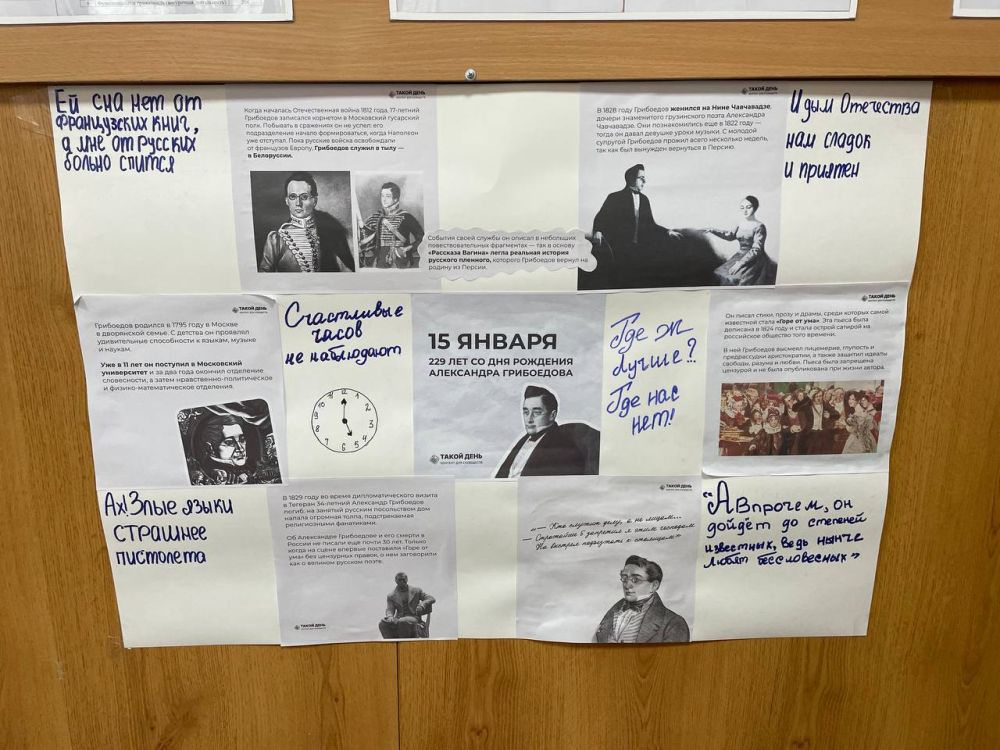 Ей сна нет от
французских книг,
а мне от русских
больно спится
ТАКОЙ ДЕНЬ
Когда началась Отечественная война 1812 года, 17-летний
Грибоедов записался корнетом в Московский гусарский
полк. Побывать в сражениях он не успел: его
подразделение начало формироваться, когда Наполеон
уже отступал. Пока русские войска освобождали
от французов Европу, Грибоедов служил в тылу —
в Белоруссии.
События своей службы он описал в небольших
повествовательных фрагментах — так в основу
«Рассказа Вагина» легла реальная история
русского пленного, которого Грибоедов вернул на
родину из Персии.
ТАКОЙ ДЕНЬ
В 1828 году Грибоедов женился на Нине Чавчавадзе,
дочери знаменитого грузинского поэта Александра
Чавчавадзе. Они познакомились еще в 1822 году —
тогда он давал девушке уроки музыки. С молодой
супругой Грибоедов прожил всего несколько недель,
так как был вынужден вернуться в Персию.
И дым Отечества
нам сладок
и приятен
ТАКОЙ ДЕНЬ
Грибоедов родился в 1795 году в Москве
в дворянской семье. С детства он проявлял
удивительные способности к языкам, музыке
и наукам.
Уже в 11 лет он поступил в Московский
университет и за два года окончил отделение
словесности, а затем нравственно-политическое
и физико-математическое отделения.
Счастливые
часов
не наблюдают
12
1
2
3
4
5
6
7
8
9
10
11
15 ЯНВАРЯ
229 ЛЕТ СО ДНЯ РОЖДЕНИЯ
АЛЕКСАНДРА ГРИБОЕДОВА
ТАКОЙ ДЕНЬ
КОНТЕНТ ДЛЯ СООБЩЕСТВ
Где ж
лучше?
Где нас
нет!
ТАКОЙ ДЕНЬ
Он писал стихи, прозу и драмы, среди которых самой
известной стала «Горе от ума». Эта пьеса была
дописана в 1824 году и стала острой сатирой на
российское общество того времени.
В ней Грибоедов высмеял лицемерие, глупость и
предрассудки аристократии, а также защитил идеалы
свободы, разума и любви. Пьеса была запрещена
цензурой и не была опубликована при жизни автора.
Ах! Злые языки
страшнее
пистолета
В 1829 году во время дипломатического визита
в Тегеран 34-летний Александр Грибоедов
погиб: на занятый русским посольством дом
напала огромная толпа, подстрекаемая
религиозными фанатиками.
Об Александре Грибоедове и его смерти в
России не писали еще почти 30 лет. Только
когда на сцене впервые поставили «Горе от
ума» без цензурных правок, о нем заговорили
как о великом русском поэте.
ТАКОЙ ДЕНЬ
ТАКОЙ ДЕНЬ
«— Кто служит делу, а не лицам...
— Строжайше б запретил я этим господам
На выстрел подъезжать к столицам»
“А впрочем, он
дойдёт до степеней
известных, ведь нынче
любят бессловесных»